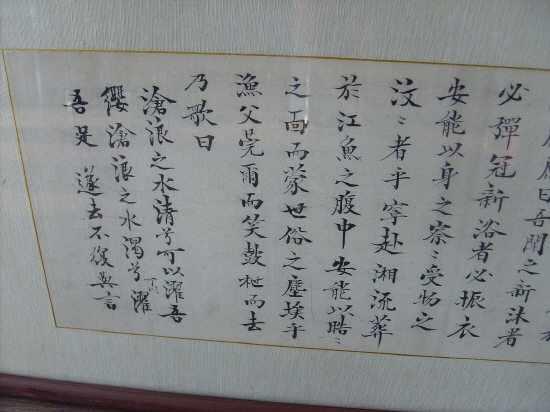 原曰吾聞之新沐者
必彈冠新浴者必振衣
安能以身之察〻受物之
汶〻者乎寧赴湘流葬
於江魚之腹中安能以晧〻
之而蒙世俗之塵埃乎
漁父莞爾而笑鼓枻而去
乃歌曰
滄浪之水清兮可以濯吾
纓滄浪之水濁兮可以濯
吾足 遂去不復與言